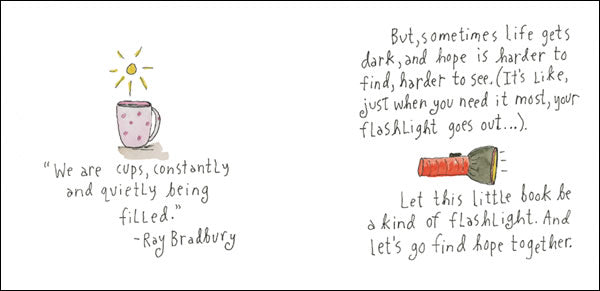 "We are cups, constantly
and quietly being
filled."
-Ray Bradbury
But, sometimes life gets
dark, and hope is harder to
find, harder to see. (It's like,
just when you need it most, your
flashlight goes out...).
Let this little book be
a kind of flashlight. And
let's go find hope together.